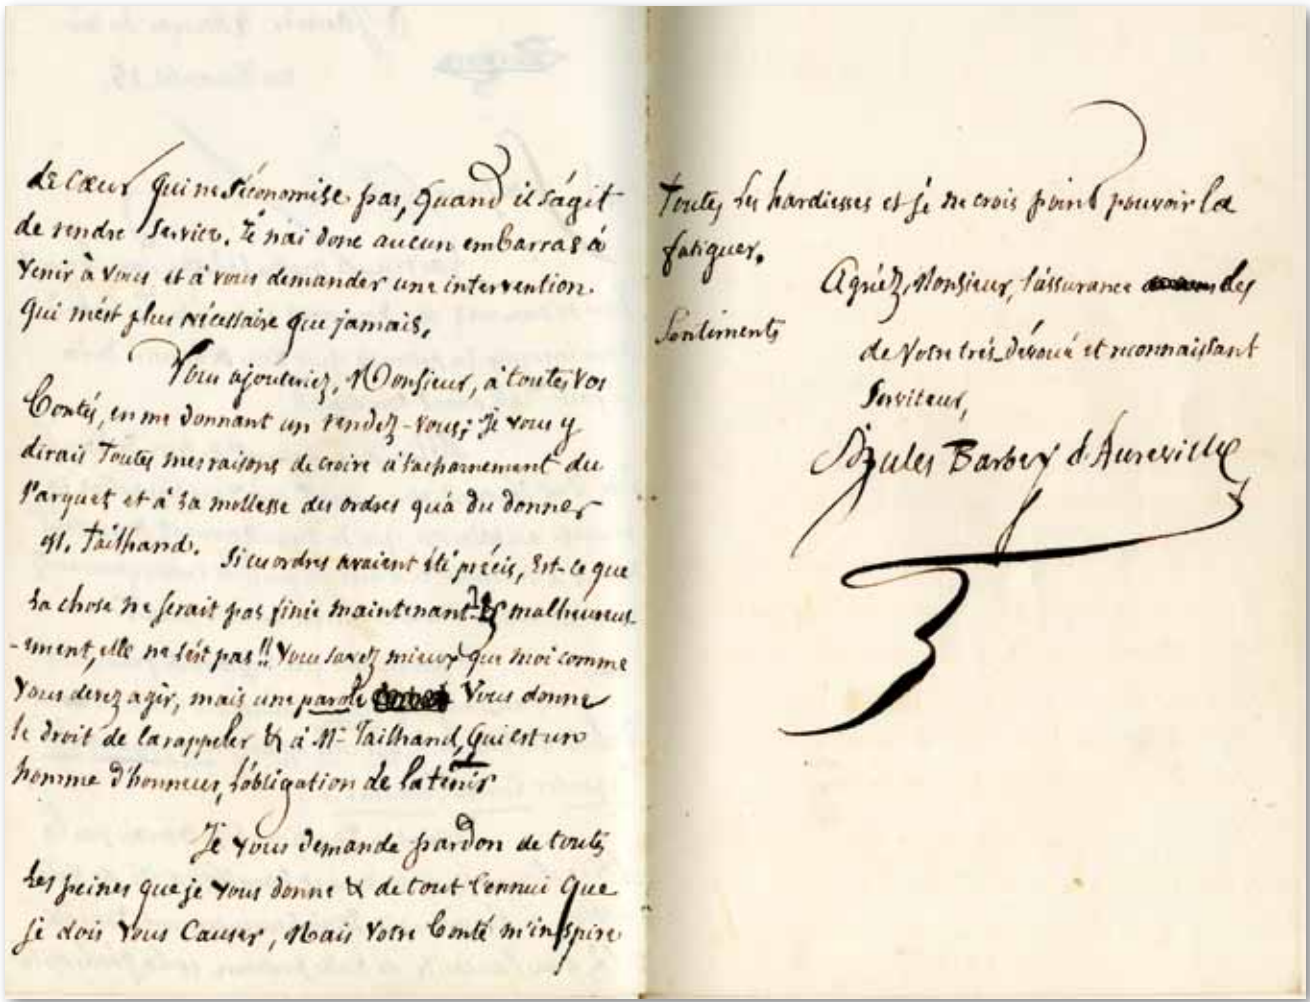 de cœur qui ne s'économise pas, quand il s'agit
de rendre service. Je n'ai donc aucun embarras à
venir à vous et à vous demander une intervention
qui m'est plus nécessaire que jamais.
Vous ajouteriez, Monsieur, à toutes vos
bontés, en me donnant un rendez-vous; je vous y
dirais toutes mes raisons de croire à l'acharnement du
Parquet et à la mollesse des ordres qu'a du donner
M. Tailhand.
Si ces ordres avaient été précis, Est-ce que
la chose ne serait pas finie maintenant? & malheureus-
-ement, elle ne l'est pas!! Vous savez mieux que moi comme
vous devez agir, mais une parole Vous donne
le droit de la rappeler & à Mr Tailhand, qui est un
homme d'honneur, l'obligation de la tenir
Je vous demande pardon de toutes
les peines que je vous donne & de tout l'ennui que
je dois vous causer, Mais votre bonté m'inspire
toutes les hardiesses et je ne crois point pouvoir la
fatiguer.
Agréez, Monsieur, l'assurance des
sentiments
de votre très dévoué et reconnaissant
Serviteur,
Jules Barbey d'Aurevilly